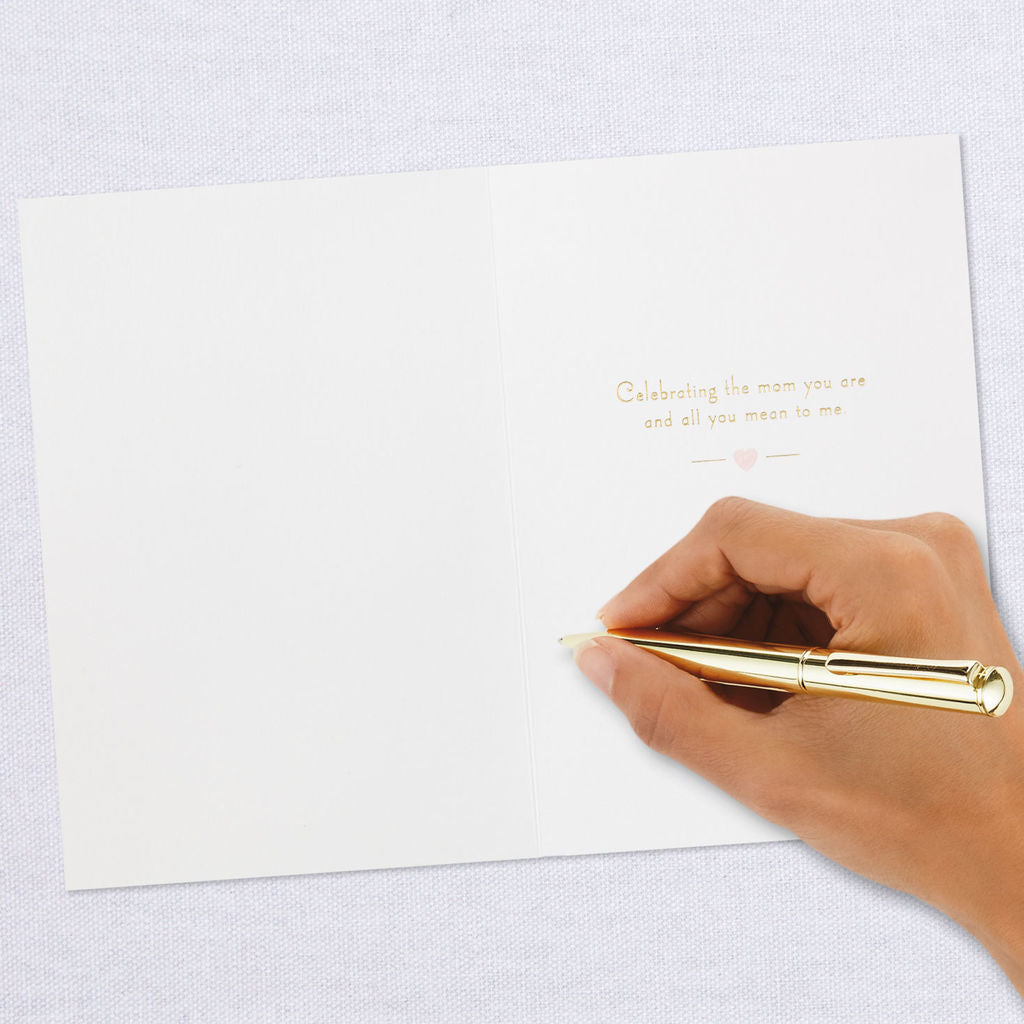 Celebrating the mom you are
and all you mean to me.